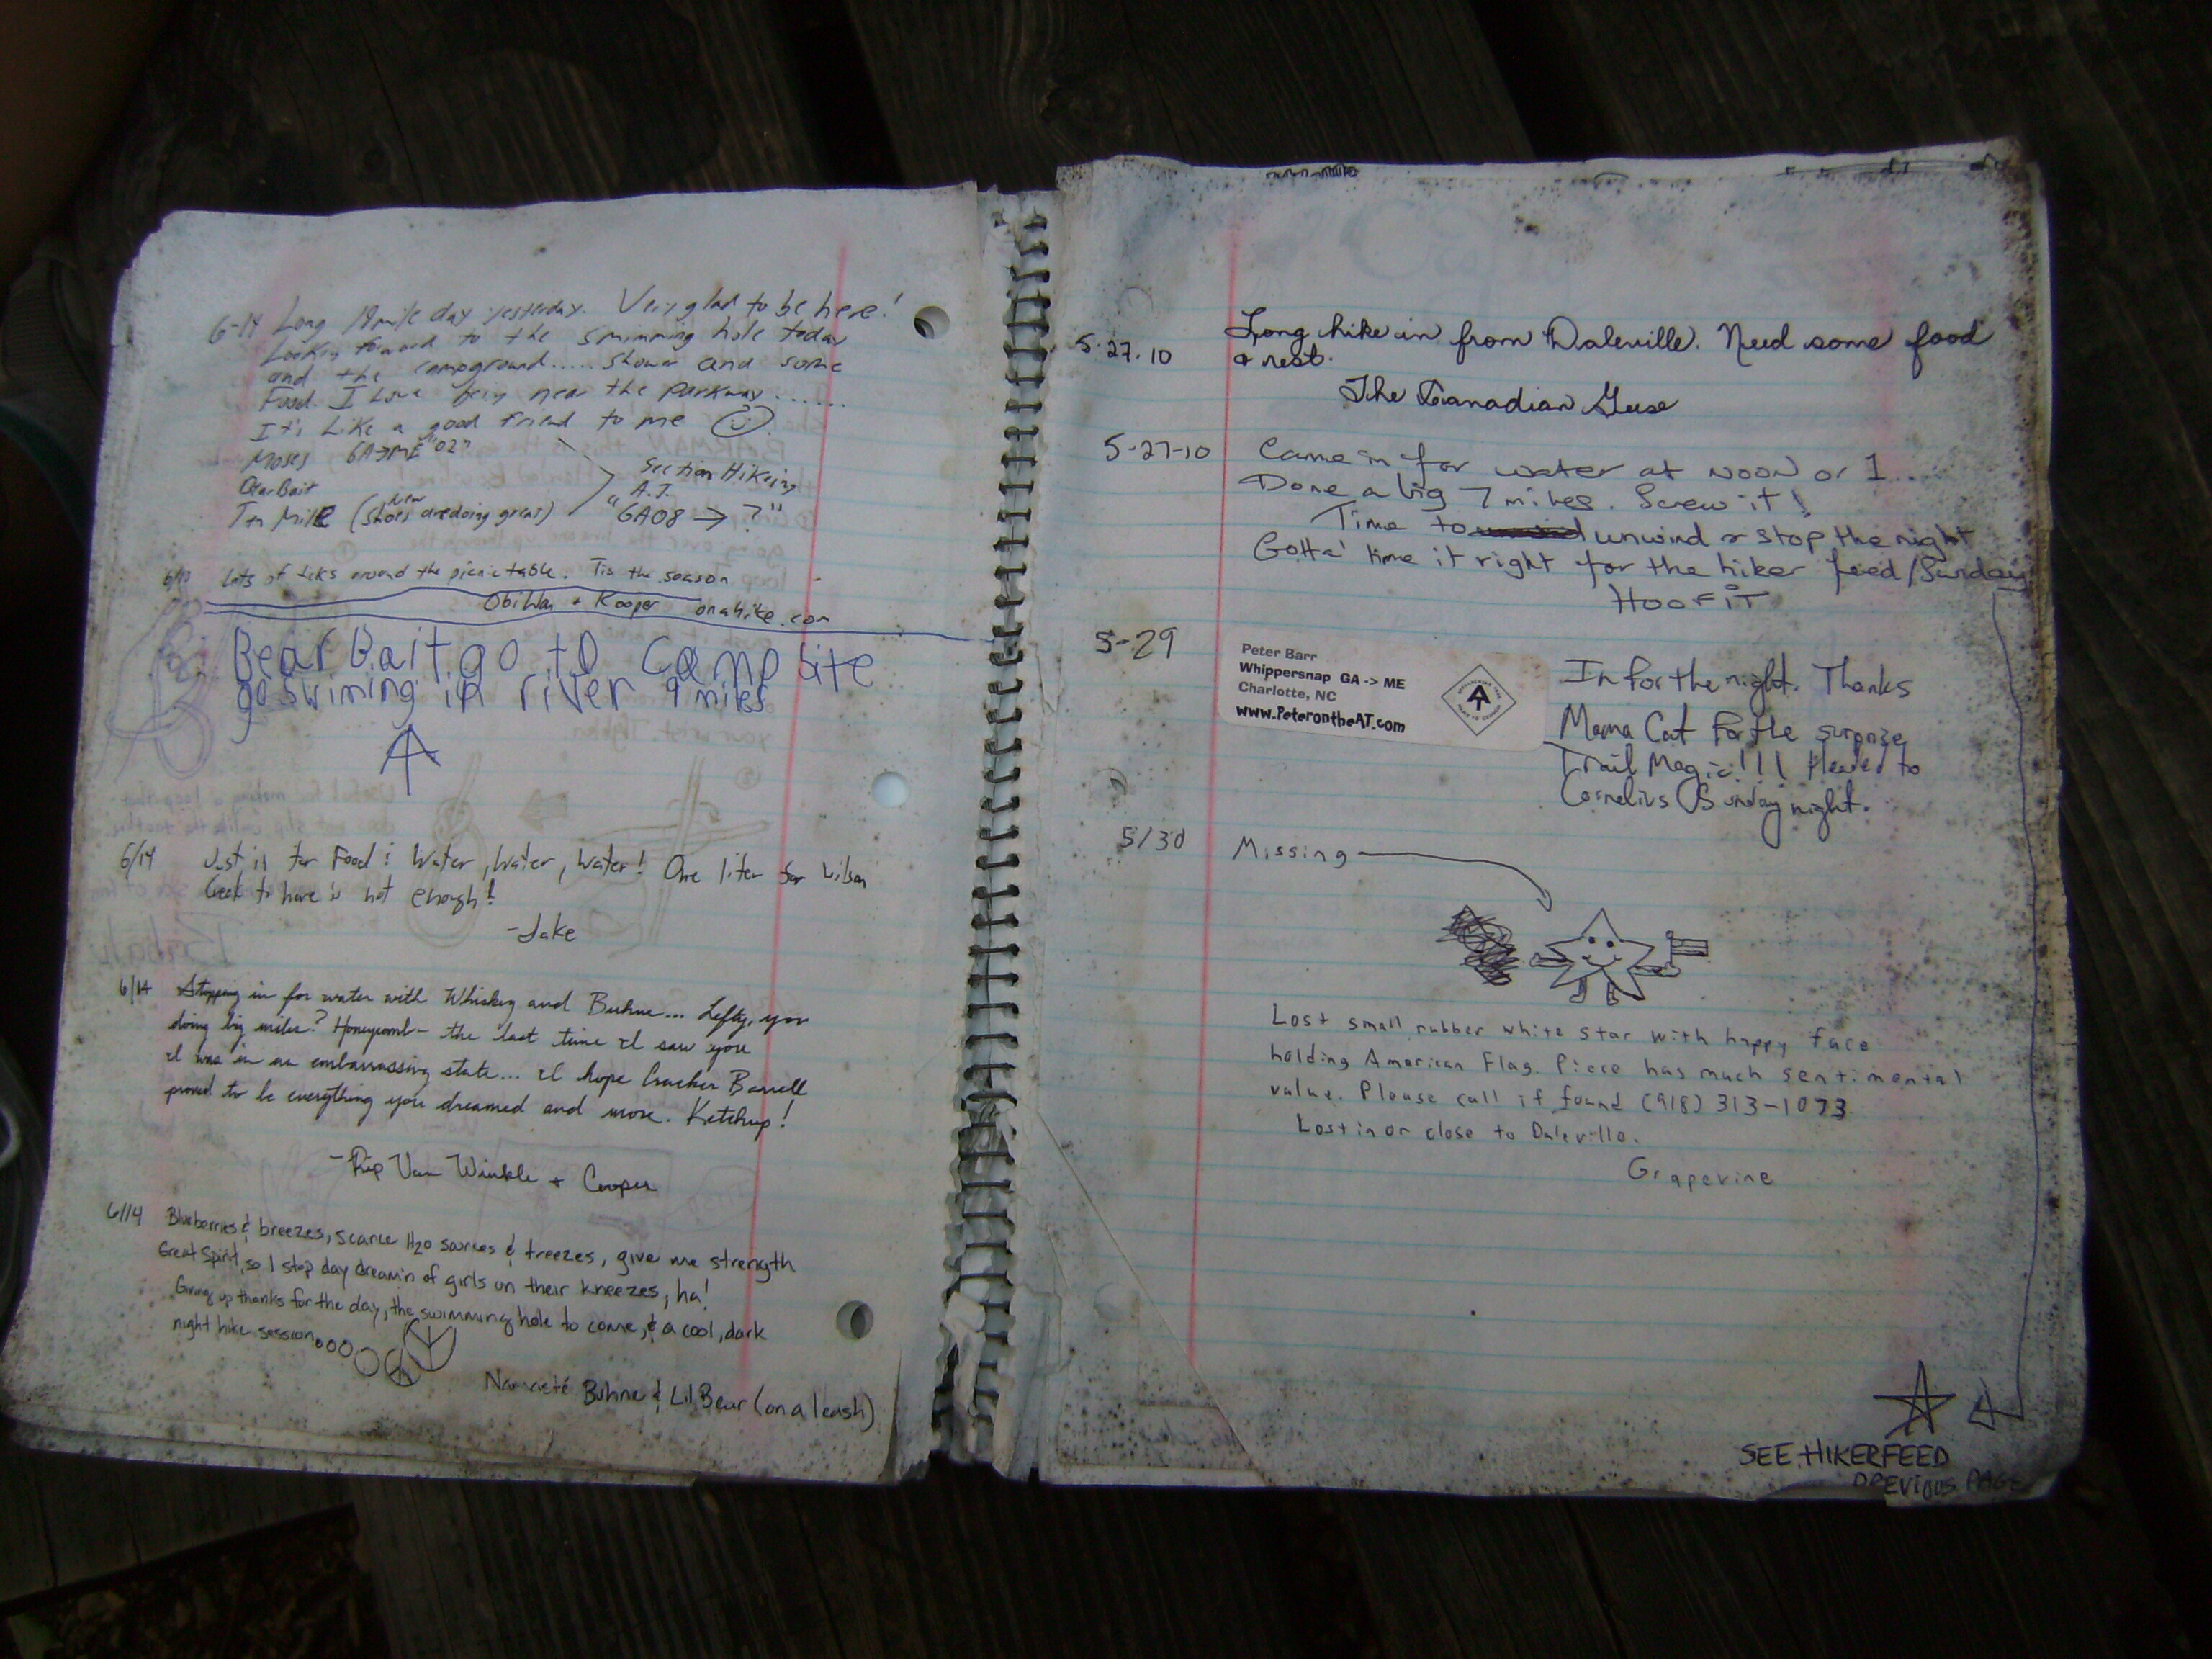 6-14 Long 19 mile day yesterday. Very glad to be here!
Looking forward to the swimming hole today
and the campground..... shower and some
Food. I Love being near the parkway......
It's Like a good friend to me
Moses GA→ME "02"
Bear Bait
Ten Mile (New shoes are doing great)
Section Hiking
A.T.
"GA08 → ?"
Lots of tiks around the picnic table. Tis the season
ObiWan + Kooper onahike.com
Bear Bait go to camp site
go swiming in river 9 miles
6/14 Just in for Food & Water, Water, Water! One liter for Wilson
Creek to here is not enough!
-Jake
6/14 Stopping in for water with Whiskey and Buhne... Lefty, you
doing big miles? Honeycomb- the last time I saw you
I was in an embarrassing state... I hope Cracker Barrell
proved to be everything you dreamed and more. Ketchup!
-Rip Van Winkle + Cooper
6/14 Blueberries & breezes, scarce H2O sources & treezes, give me strength
Great Spirit, so I stop day dream'n of girls on their kneezes, ha!
Giving up thanks for the day, the swimming hole to come, & a cool, dark
night hike session
Namasté Buhne & Lil Bear (on a leash)
5.27.10 Long hike in from Daleville. Need some food
& rest.
The Canadian Geese
5-27-10 Came in for water at noon or 1...
Done a big 7 miles. Screw it!
Time to unwind & stop the night
Gotta' time it right for the hiker feed/Sunday
HOOFiT
5-29
Peter Barr
Whippersnap GA -> ME
Charlotte, NC
www.PeterontheAT.com
In for the night. Thanks
Mama Cat for the surprize
Trail Magic!!! Headed to
Cornelius Sunday night.
5/30 Missing
Lost small rubber white star with happy face
holding American Flag. Piece has much sentimental
value. Please call if found (918) 313-1073
Lost in or close to Daleville.
Grapevine
SEE HIKERFEED
PREVIOUS PAGE